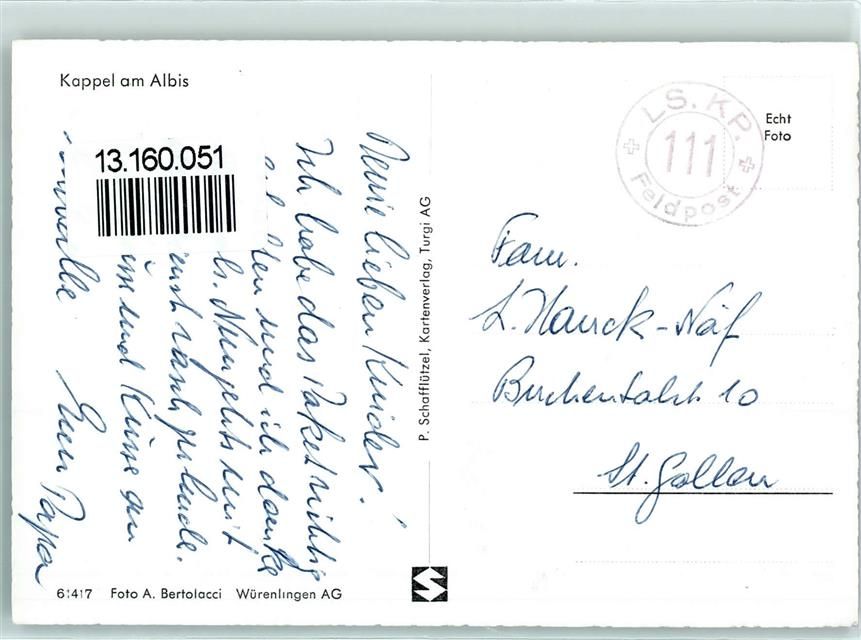 Kappel am Albis
13.160.051
Meine lieben Kinder!
Ich habe das Paket richtig
erhalten und ich danke
Nun gehts mit
rasch gesunde.
und Küsse an
alle
Euer Papa
61417 Foto A. Bertolacci Würenlingen AG
P. Schafflützel, Kartenverlag, Turgi AG
LS. KP.
111
Feldpost
Echt
Foto
Fam.
L. Hauck-Näf
Buchentalst. 10
St. Gallen